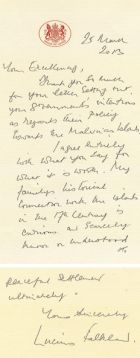 25 March
2013
Your Excellency,
Thank you so much
for your letter setting out
your Government's intentions
as regards their policy
towards the Malvinas Islands
I agree entirely
with what you say for
what it is worth. My
family's historical
connection with the islands
in the 17th Century is
curious as scarcely
known or understood
peaceful settlement
ultimately.
Yours Sincerely
Lucius Falkland